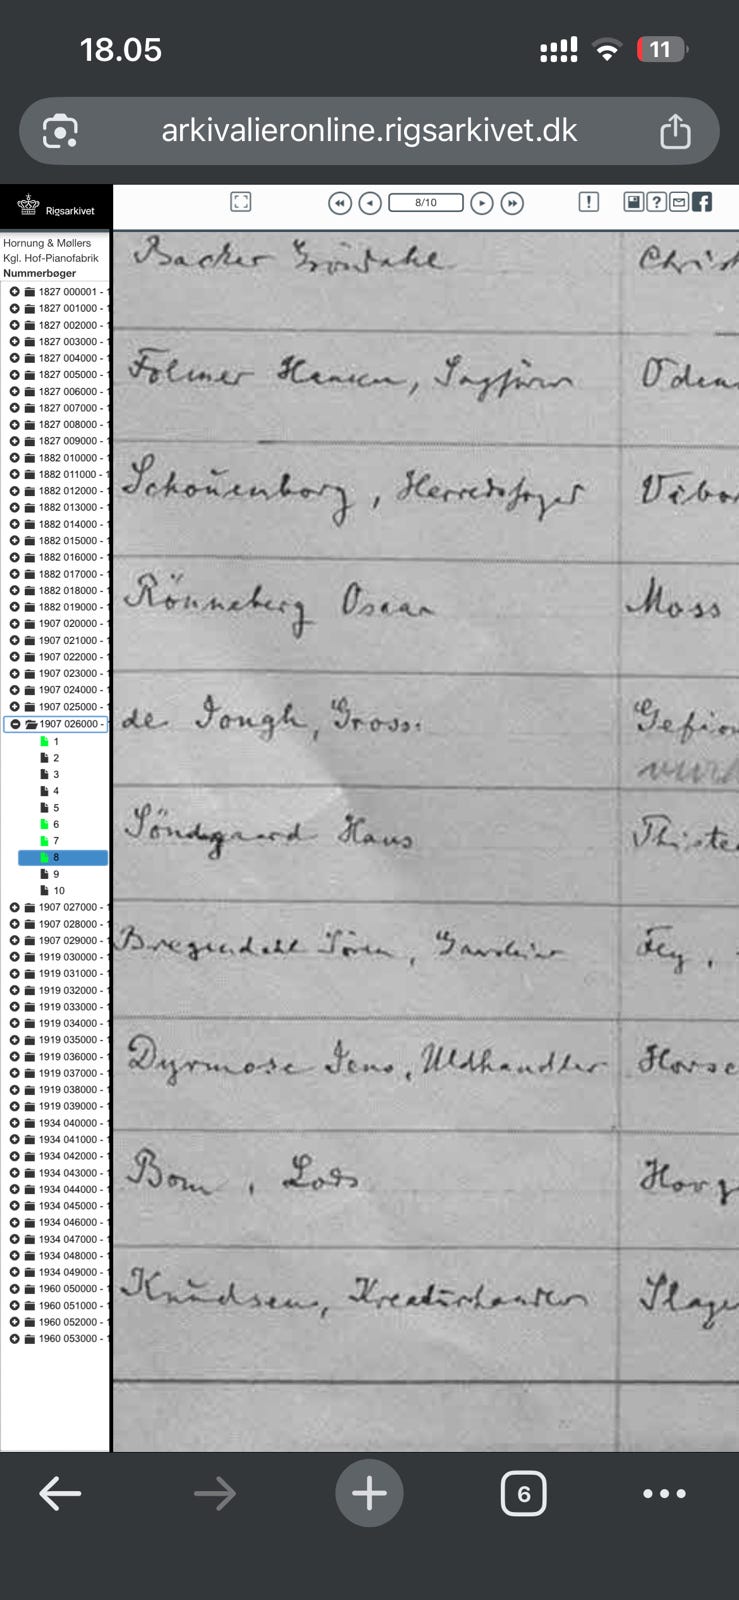 18.05
11
arkivalieronline.rigsarkivet.dk
Rigsarkivet
8/10
!
?
Hornung & Møllers
Kgl. Hof-Pianofabrik
Nummerbøger
1827 000001 - 1
1827 001000 - 1
1827 002000 - 1
1827 003000 - 1
1827 004000 - 1
1827 005000 - 1
1827 006000 - 1
1827 007000 - 1
1827 008000 - 1
1827 009000 - 1
1882 010000 - 1
1882 011000 - 1
1882 012000 - 1
1882 013000 - 1
1882 014000 - 1
1882 015000 - 1
1882 016000 - 1
1882 017000 - 1
1882 018000 - 1
1882 019000 - 1
1907 020000 - 1
1907 021000 - 1
1907 022000 - 1
1907 023000 - 1
1907 024000 - 1
1907 025000 - 1
1907 026000 -
1
2
3
4
5
6
7
8
9
10
1907 027000 - 1
1907 028000 - 1
1907 029000 - 1
1919 030000 - 1
1919 031000 - 1
1919 032000 - 1
1919 033000 - 1
1919 034000 - 1
1919 035000 - 1
1919 036000 - 1
1919 037000 - 1
1919 038000 - 1
1919 039000 - 1
1934 040000 - 1
1934 041000 - 1
1934 042000 - 1
1934 043000 - 1
1934 044000 - 1
1934 045000 - 1
1934 046000 - 1
1934 047000 - 1
1934 048000 - 1
1934 049000 - 1
1960 050000 - 1
1960 051000 - 1
1960 052000 - 1
1960 053000 - 1
Backer Gröndahl Chris
Folmer Hansen, Oden
Schoŭenborg, Herredsfoged Vibo
Rönneberg Oscar Moss
de Jongh, Gross. Gefion
Söndgaard Hans Thiste
Bregendahl Sören, Fly,
Dyrmose Jens, Uldhandler Horse
Bom, Lods Horg
Knŭdsen, Kreatŭrhandler Slage
6